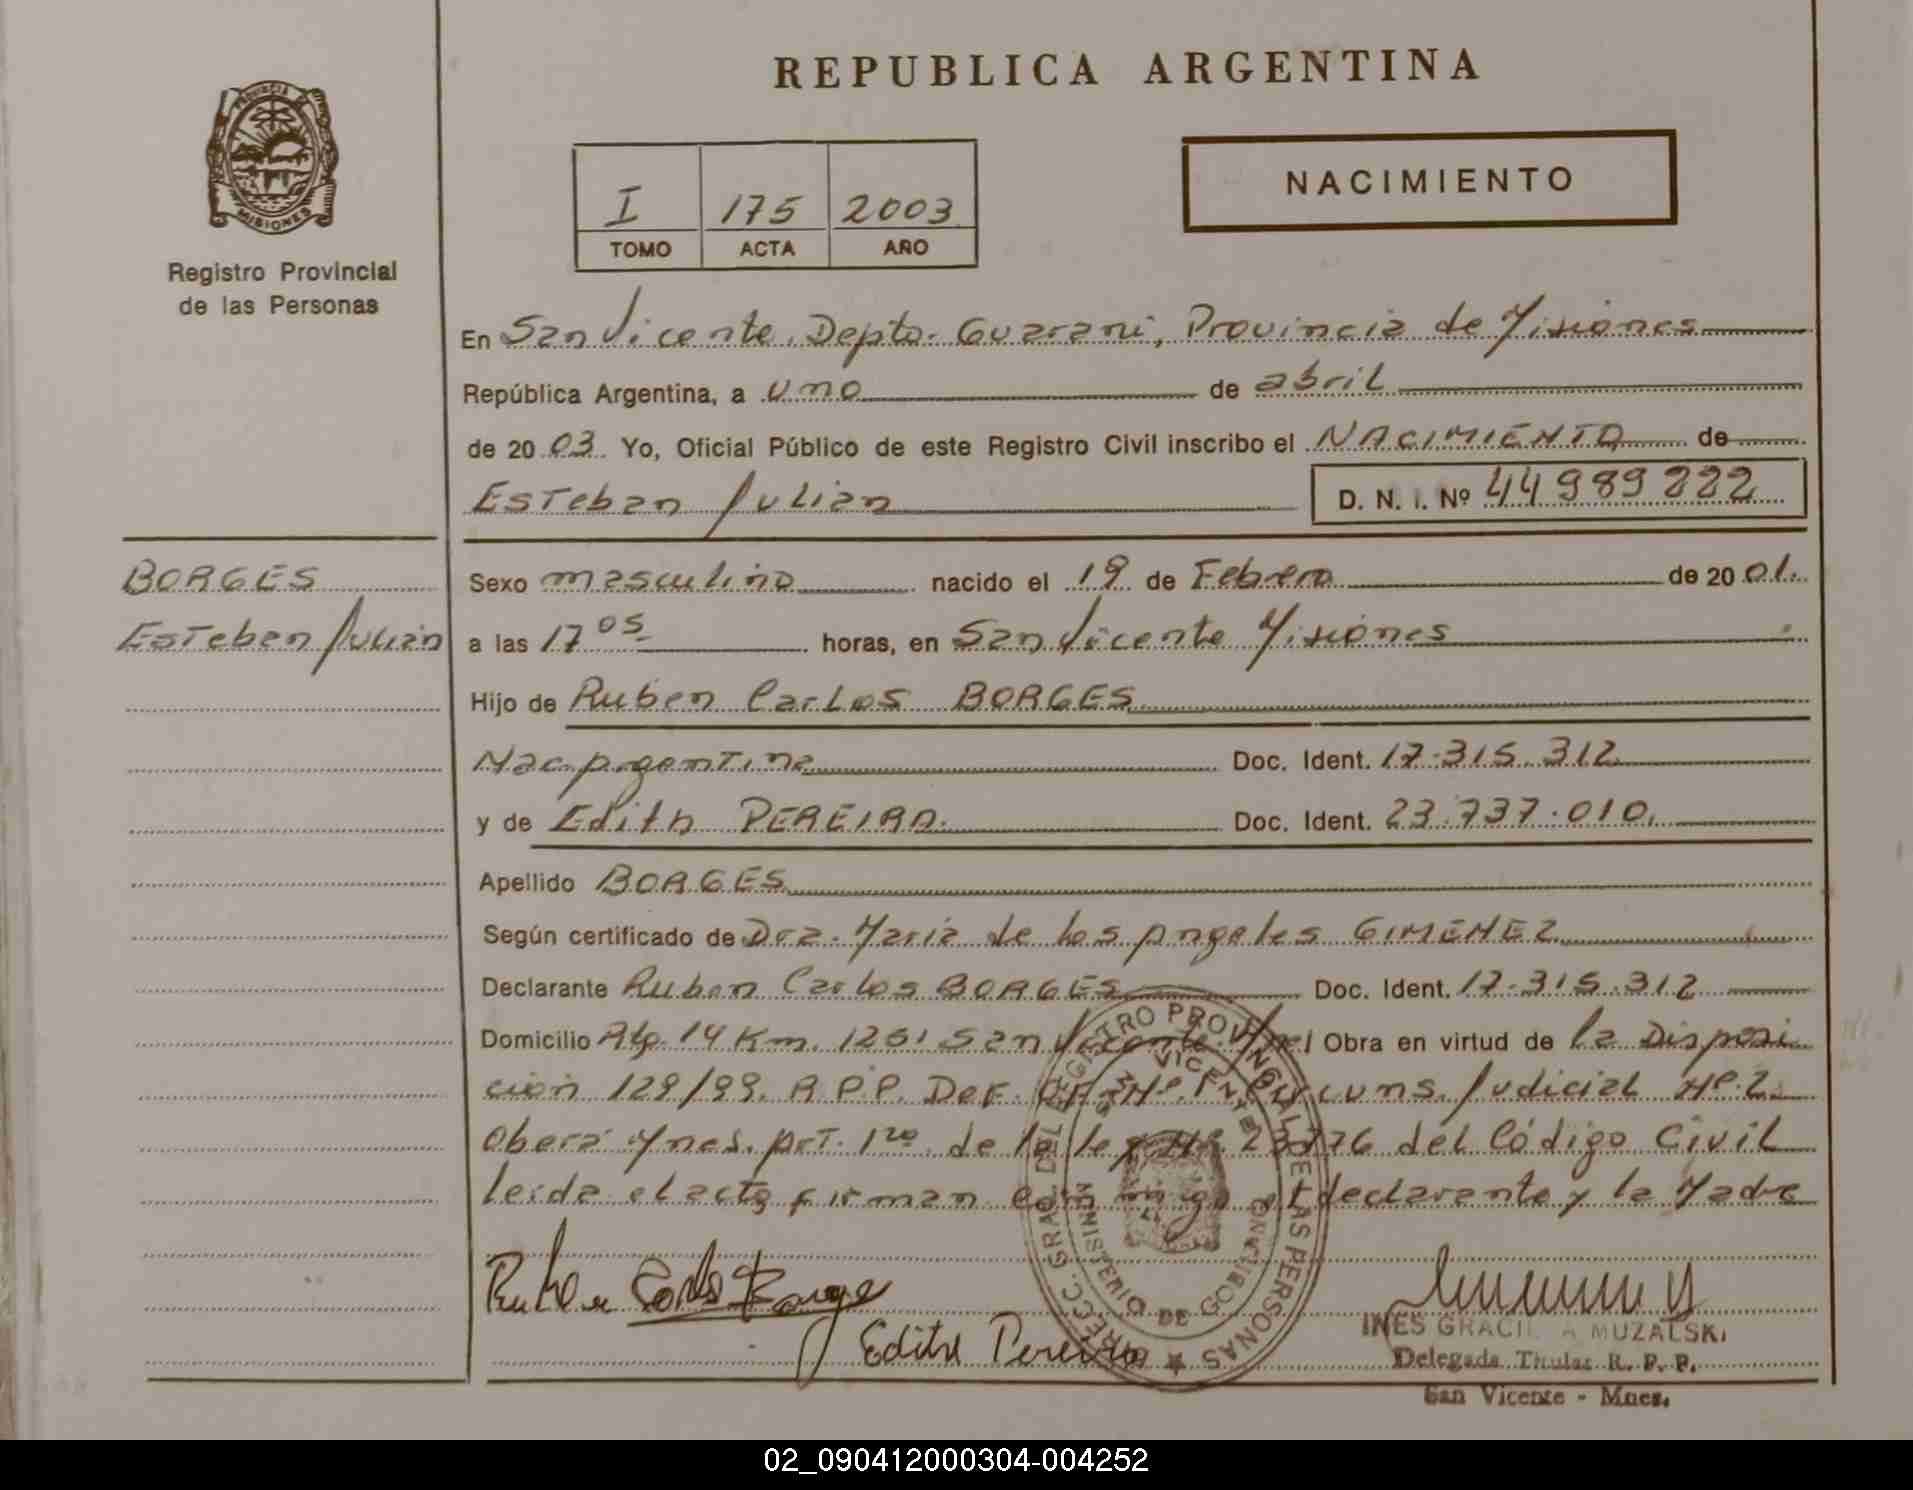 REPUBLICA ARGENTINA
PROVINCIA DE
MISIONES
Registro Provincial
de las Personas
I 175 2003
TOMO ACTA AÑO
NACIMIENTO
En San Vicente. Depto. Guarani, Provincia de Misiones
República Argentina, a uno de abril
de 20 03. Yo, Oficial Público de este Registro Civil inscribo el NACIMIENTO de
Esteban Julian D. N. I. Nº 44989222
BORGES
Esteban Julian
Sexo masculino nacido el 19 de Febrero de 20 01.
a las 17 05 horas, en San Vicente Misiones
Hijo de Ruben Carlos BORGES
Nac. Argentina Doc. Ident. 17.315.312
y de Edith PEREIRA. Doc. Ident. 23.737.010.
Apellido BORGES
Según certificado de Dra. Maria de los Angeles GIMENEZ
Declarante Ruben Carlos BORGES Doc. Ident. 17.315.312
Domicilio Km. San Vicente. Obra en virtud de la Disposi
ción 129/99. R.P.P. Def. Of. Nº 1 Judicial Nº 2
Obera Mnes. Art. 1ro. de la ley Nº 23776 del Código Civil
leida el acta firman conmigo el declarante y la Madre
Ruben Carlos Borges
Edith Pereira
DIRECC. GRAL. DEL REGISTRO PROVINCIAL DE LAS PERSONAS
SAN VICENTE
MINISTERIO DE GOBIERNO
INES GRACIELA MUZALSKI
Delegada Titular R. P. P.
San Vicente - Mnes.
02_090412000304-004252